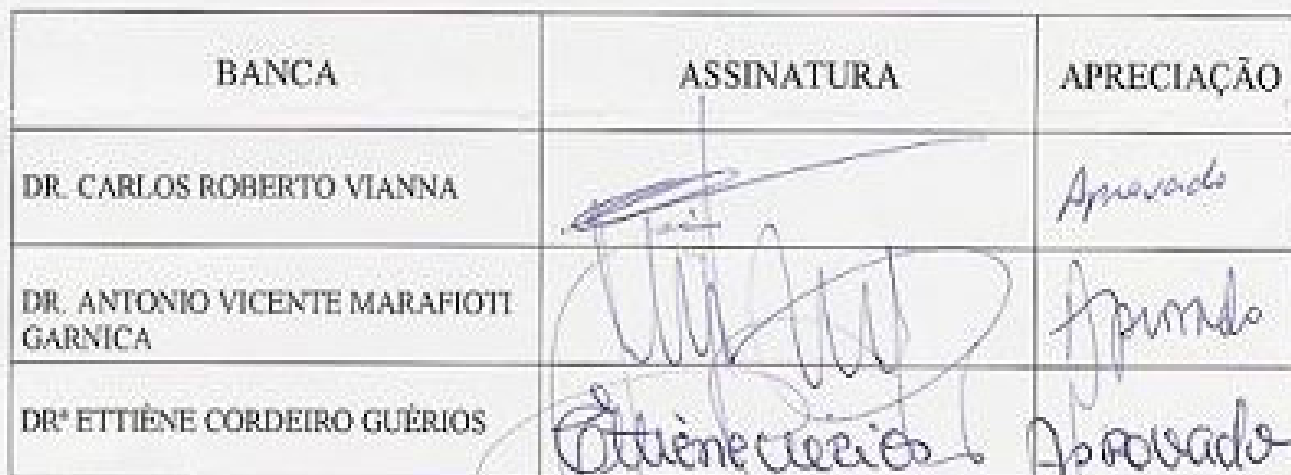 BANCA ASSINATURA APRECIAÇÃO
DR. CARLOS ROBERTO VIANNA Aprovado
DR. ANTONIO VICENTE MARAFIOTI
GARNICA Aprovado
DRª ETTIÈNE CORDEIRO GUÉRIOS Ettiène Guérios Aprovado